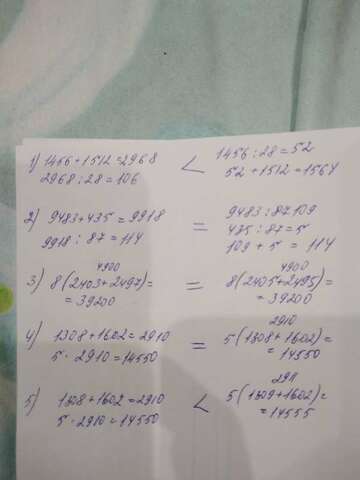 1) 1456+1512=2968 < 1456:28=52
2968:28=106 52+1512=1564
2) 9483+435=9918 = 9483:87 109
9918:87=114 435:87=5
109+5=114
4900 4900
3) 8(2403+2497)= = 8(2405+2495)=
=39200 =39200
2910
4) 1308+1602=2910 = 5(1308+1602)=
5·2910=14550 =14550
2911
5) 1308+1602=2910 < 5(1309+1602)=
5·2910=14550 =14555